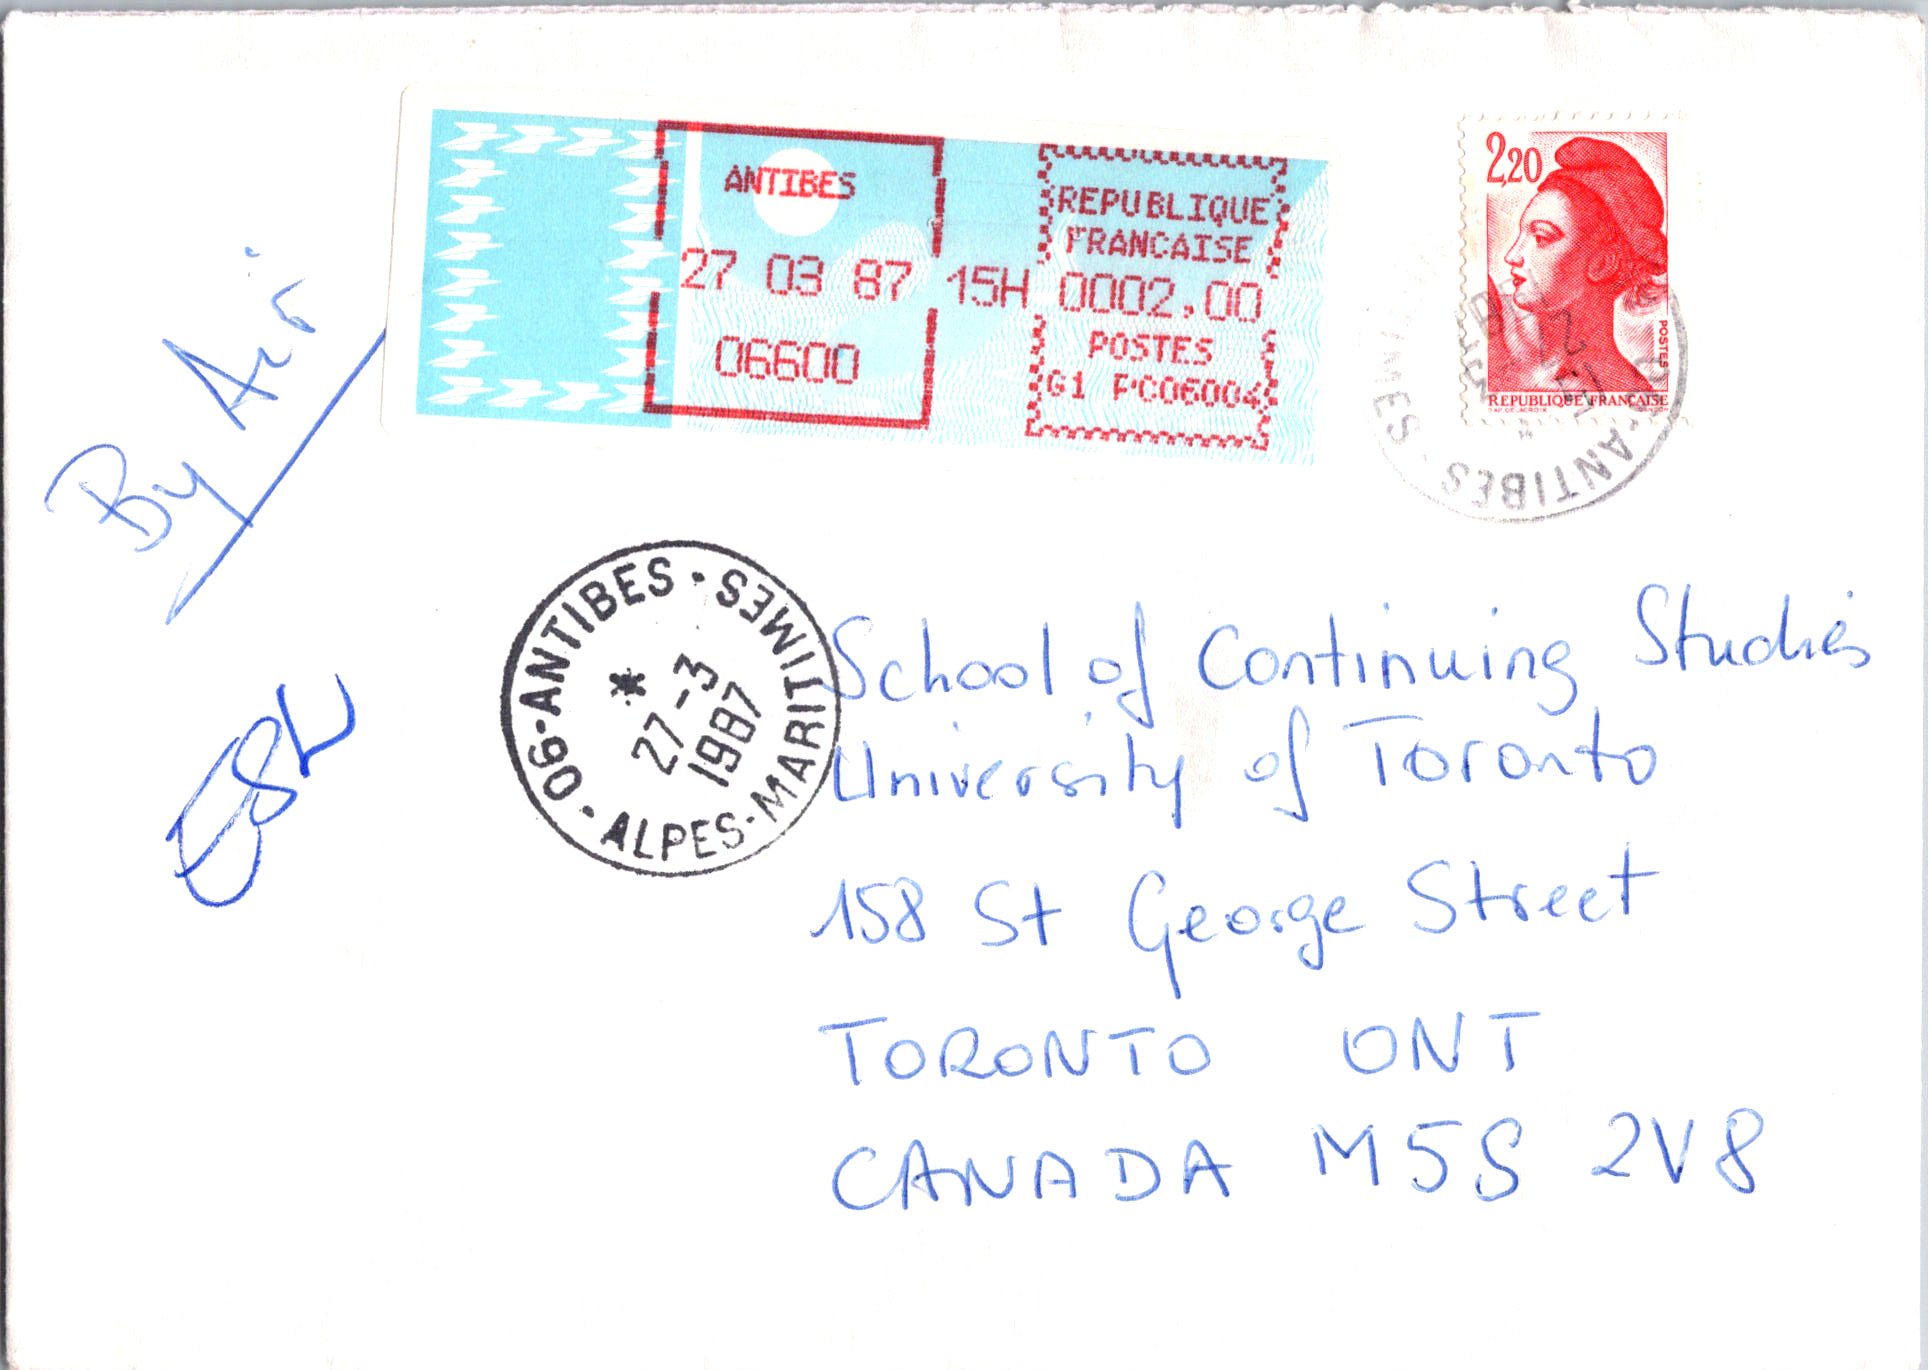 ANTIBES
27 03 87 15H
06600
REPUBLIQUE
FRANCAISE
0002,00
POSTES
G1 PC06004
2,20
POSTES
REPUBLIQUE FRANÇAISE
ANTIBES
By Air
ESL
06-ANTIBES · ALPES-MARITIMES ·
27-3
1987
School of Continuing Studies
University of Toronto
158 St George Street
TORONTO ONT
CANADA M5S 2V8